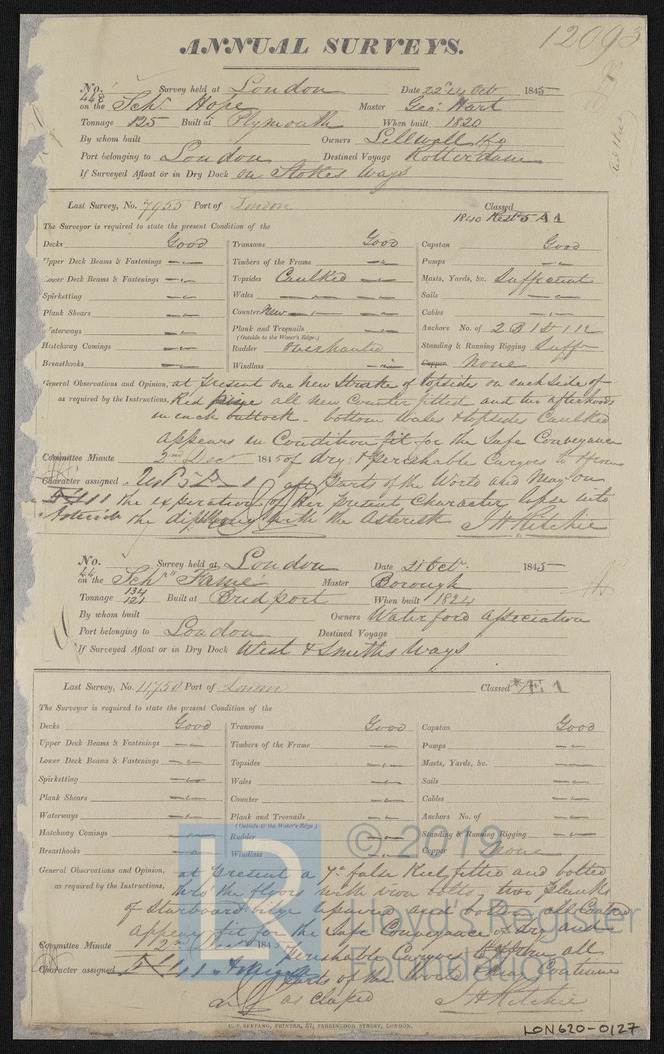 12093
ANNUAL SURVEYS.
No. 448 Survey held at London Date 22 & 24 Oct 1845
on the Schr Hope Master Geo: Hart
Tonnage 125 Built at Plymouth When built 1820
By whom built Owners
Port belonging to London Destined Voyage Rotterdam
If Surveyed Afloat or in Dry Dock on Stokes Ways
Last Survey, No. 7955 Port of London Classed
1840 Rest 5 A 1
The Surveyor is required to state the present Condition of the
Decks Good Transoms Good Capstan Good
Upper Deck Beams & Fastenings Timbers of the Frame Pumps
Lower Deck Beams & Fastenings Topsides Caulked Masts, Yards, &c. Sufficient
Spirketting Wales Sails
Plank Shears Counter New Cables
Waterways Plank and Treenails Anchors No. of 2 B 1 St 1 K
(Outside to the Water's Edge.)
Hatchway Comings Rudder Overhauled Standing & Running Rigging Suff
Breasthooks Windlass Copper None
General Observations and Opinion, at present one new Strake of topsides on each side of
as required by the Instructions, Red pine all new Counter fitted and two afterhoods
in each buttock. bottom Wales & topsides Caulked
appears in Condition fit for the Safe Conveyance
Committee Minute 2nd Decr 1845 of dry & perishable Cargoes to & from
Character assigned all parts of the World and May on
the expiration of Her present Character lapse into
the diphthong with the Asterisk J H Ritchie
No. 44 Survey held at London Date 21 Octr 1845
on the Schr "Fame" Master Borough
Tonnage 134 121 Built at Bridport When built 1824
By whom built Owners Waterford Association
Port belonging to London Destined Voyage
If Surveyed Afloat or in Dry Dock West & Smiths Ways
Last Survey, No. 11750 Port of London Classed *Æ 1
The Surveyor is required to state the present Condition of the
Decks Good Transoms Good Capstan Good
Upper Deck Beams & Fastenings Timbers of the Frame Pumps
Lower Deck Beams & Fastenings Topsides Masts, Yards, &c.
Spirketting Wales Sails
Plank Shears Counter Cables
Waterways Plank and Treenails Anchors No. of
(Outside to the Water's Edge.)
Hatchway Comings Rudder Standing & Running Rigging
Breasthooks Windlass Copper None
General Observations and Opinion, at present a 7in false Keel fitted and bolted
as required by the Instructions, thro' the floors with iron bolts, two planks
of Starboard bilge repaired and bottom all Caulked
appears fit for the Safe Conveyance of dry and
Committee Minute 2nd Decr 1845 perishable Cargoes to & from all
Character assigned parts of the World & May Continue
as classed J H Ritchie
C. F. SEYFANG, PRINTER, 57, FARRINGDON STREET, LONDON.
LON620-0127
LR
© 2019
Lloyd's Register
Foundation